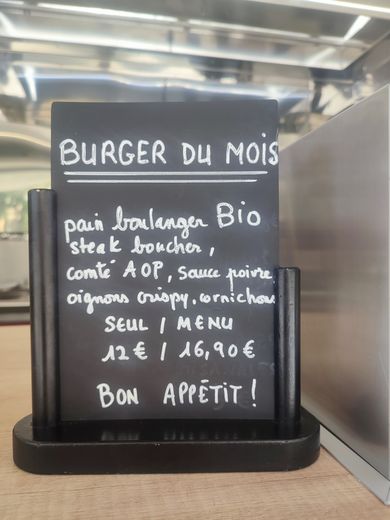 BURGER DU MOIS
pain boulanger Bio
steak boucher,
comté AOP, sauce poivre
oignons crispy, cornichons
SEUL / MENU
12€ / 16,90€
BON APPÉTIT !